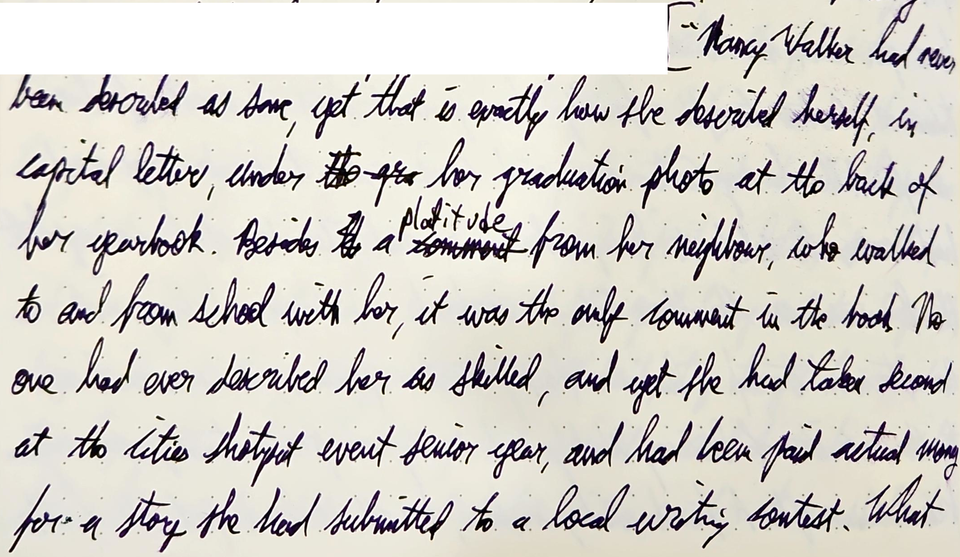 [ "Nancy Walker had never
been described as sane, yet that is exactly how she described herself, in
capital letter, under the gra her graduation photo at the back of
her yearbook. Besides a comment platitude from her neighbour, who walked
to and from school with her, it was the only comment in the book No
one had ever described her as skilled, and yet she had taken second
at the cities shotput event senior year, and had been paid actual money
for a story she had submitted to a local writing contest. What